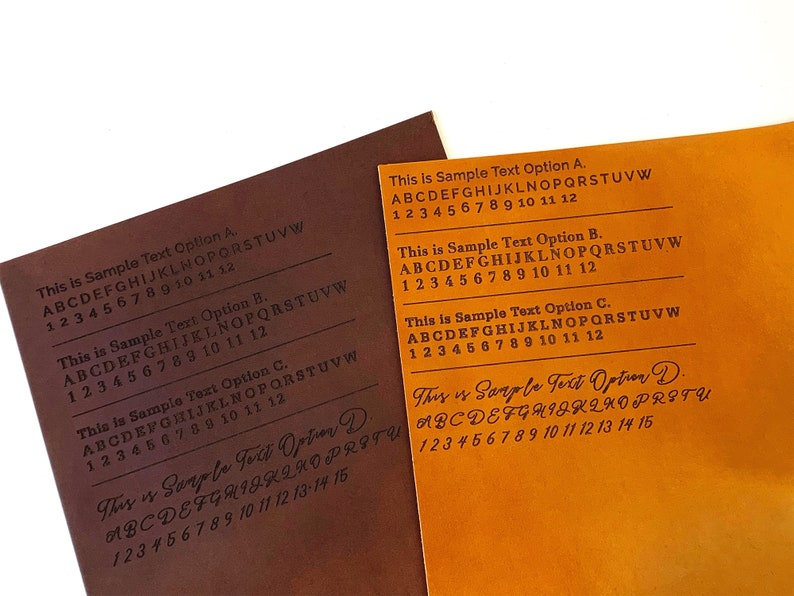 This is Sample Text Option A.
ABCDEFGHIJKLNOPQRSTUVW
1 2 3 4 5 6 7 8 9 10 11 12
This is Sample Text Option B.
ABCDEFGHIJKLNOPQRSTUVW
1 2 3 4 5 6 7 8 9 10 11 12
This is Sample Text Option C.
ABCDEFGHIJKLNOPQRSTUVW
1 2 3 4 5 6 7 8 9 10 11 12
This is Sample Text Option D.
ABCDEFGHIJKLNOPQRSTU
1 2 3 4 5 6 7 8 9 10 11 12 13 14 15
This is Sample Text Option A.
ABCDEFGHIJKLNOPQRSTUVW
1 2 3 4 5 6 7 8 9 10 11 12
This is Sample Text Option B.
ABCDEFGHIJKLNOPQRSTUVW
1 2 3 4 5 6 7 8 9 10 11 12
This is Sample Text Option C.
ABCDEFGHIJKLNOPQRSTUVW
1 2 3 4 5 6 7 8 9 10 11 12
This is Sample Text Option D.
ABCDEFGHIJKLNOPQRSTU
1 2 3 4 5 6 7 8 9 10 11 12 13 14 15